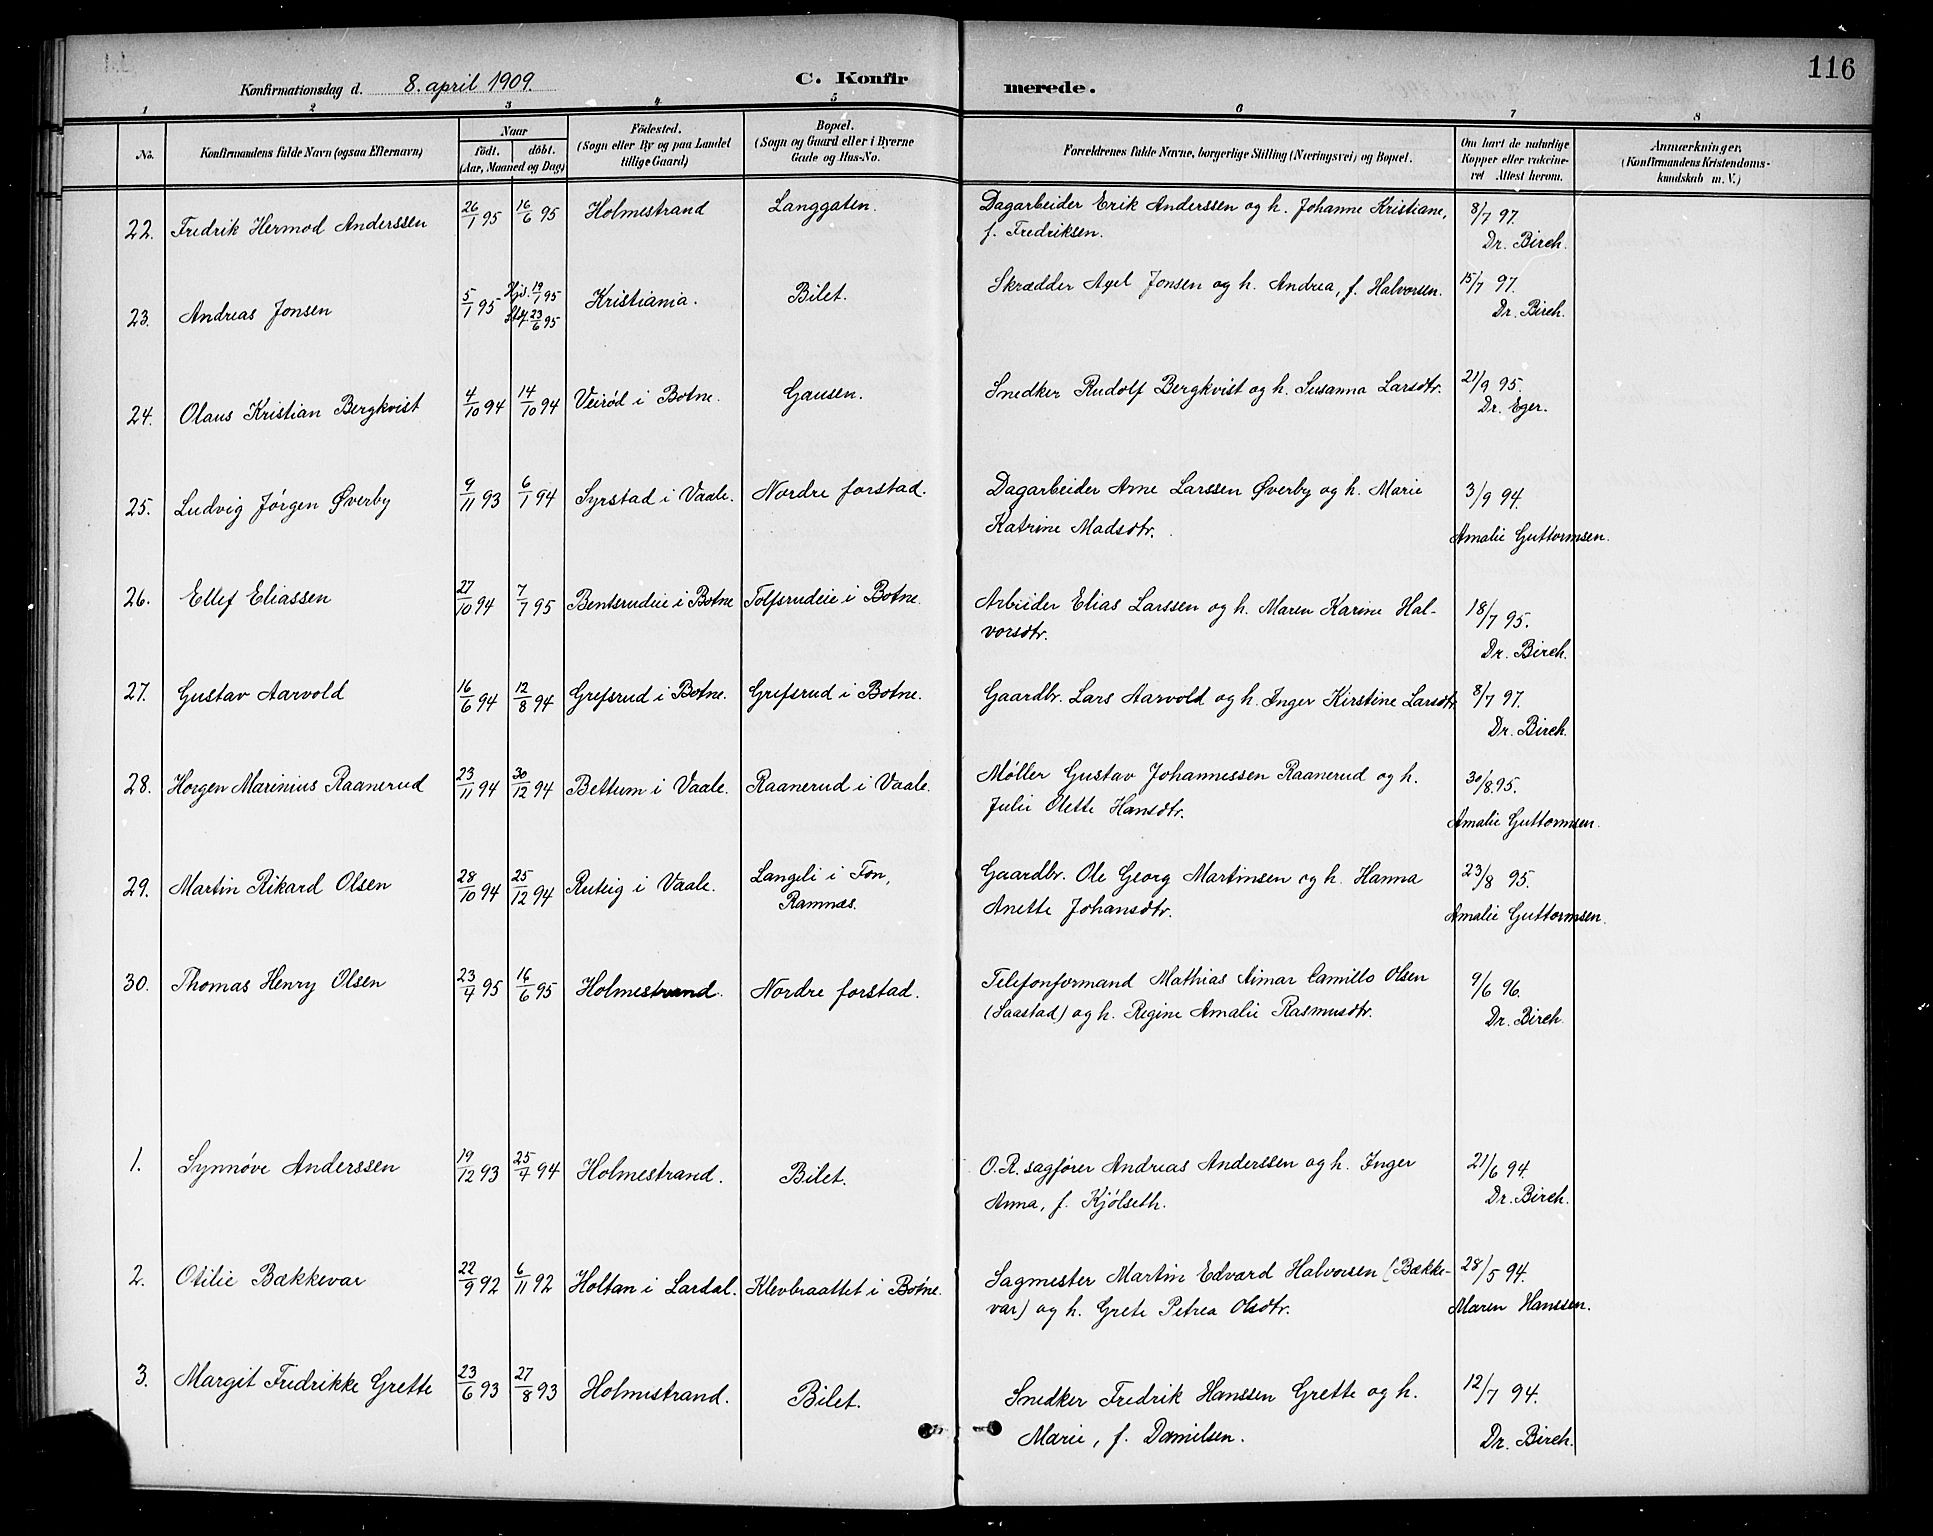 116
Konfirmationsdag d. 8. april 1909. C. Konfirmerede.
1 2 3 4 5 6 7 8
No.
Konfirmandens fulde Navn (ogsaa Efternavn)
Naar
födt. döbt.
(Aar, Maaned og Dag)
Födested.
(Sogn eller By og paa Landet
tillige Gaard)
Bopæl.
(Sogn og Gaard eller i Byerne
Gade og Hus-No.
Forældrenes fulde Navne, borgerlige Stilling (Næringsvei) og Bopæl.
Om havt de naturlige
Kopper eller vakcine-
ret Attest herom.
Anmærkninger.
(Konfirmandens Kristendoms-
kundskab m. V.)
22. Fredrik Hermod Anderssen 26/1 95 16/6 95 Holmestrand Langgaten. Dagarbeider Erik Anderssen og h. Johanne Kristiane, 8/7 97.
f. Fredriksen. Dr. Birch.
23. Andreas Jonsen 5/1 95 Hjd. 19/1 95 Kristiania. Bilet. Skrædder Axel Jonsen og h. Andrea, f. Halvorsen. 15/7 97.
23/6 95 Dr. Birch.
24. Olaus Kristian Bergkvist 4/10 94 14/10 94 Veirød i Botne. Gausen. Snedker Rudolf Bergkvist og h. Susanna Larsdtr. 21/9 95.
Dr. Eger.
25. Ludvig Jørgen Øverby 9/11 93 6/1 94 Syrstad i Vaale. Nordre forstad. Dagarbeider Arne Larssen Øverby og h. Marie 3/9 94.
Katrine Madsdtr. Amalie Guttormsen.
26. Ellef Eliassen 27/10 94 7/7 95 Bentsrudeie i Botne Tolfsrudeie i Botne. Arbeider Elias Larssen og h. Maren Karine Hal- 18/7 95.
vorsdtr. Dr. Birch.
27. Gustav Aarvold 16/6 94 12/8 94 Grefsrud i Botne. Grefsrud i Botne. Gaardbr. Lars Aarvold og h. Inger Kirstine Larsdtr. 8/7 97.
Dr. Birch.
28. Horgen Marinius Raanerud 23/11 94 30/12 94 Bettum i Vaale. Raanerud i Vaale. Møller Gustav Johannessen Raanerud og h. 30/8 95.
Julie Olette Hansdtr. Amalie Guttormsen.
29. Martin Rikard Olsen 28/10 94 25/12 94 Ruteig i Vaale. Langeli i Fon, Gaardbr. Ole Georg Martinsen og h. Hanna 23/8 95.
Ramnæs. Anette Johansdtr. Amalie Guttormsen.
30. Thomas Henry Olsen 23/4 95 16/6 95 Holmestrand. Nordre forstad. Telefonformand Mathias Aimar Camillo Olsen 9/6 96.
(Saastad) og h. Regine Amalie Rasmusdtr. Dr. Birch.
1. Synnøve Anderssen 19/12 93 25/4 94 Holmestrand. Bilet. O.R.sagfører Andreas Anderssen og h. Inger 21/6 94.
Anna, f. Kjølseth. Dr. Birch.
2. Otilie Bækkevar 22/9 92 6/11 92 Holtan i Lardal. Klevbraattet i Botne. Sagmester Martin Edvard Halvorsen (Bække- 28/5 94.
var) og h. Grete Petrea Olsdtr. Maren Hanssen.
3. Margit Fredrikke Grette 23/6 93 27/8 93 Holmestrand. Bilet. Snedker Fredrik Hanssen Grette og h. 12/7 94.
Marie, f. Danielsen. Dr. Birch.